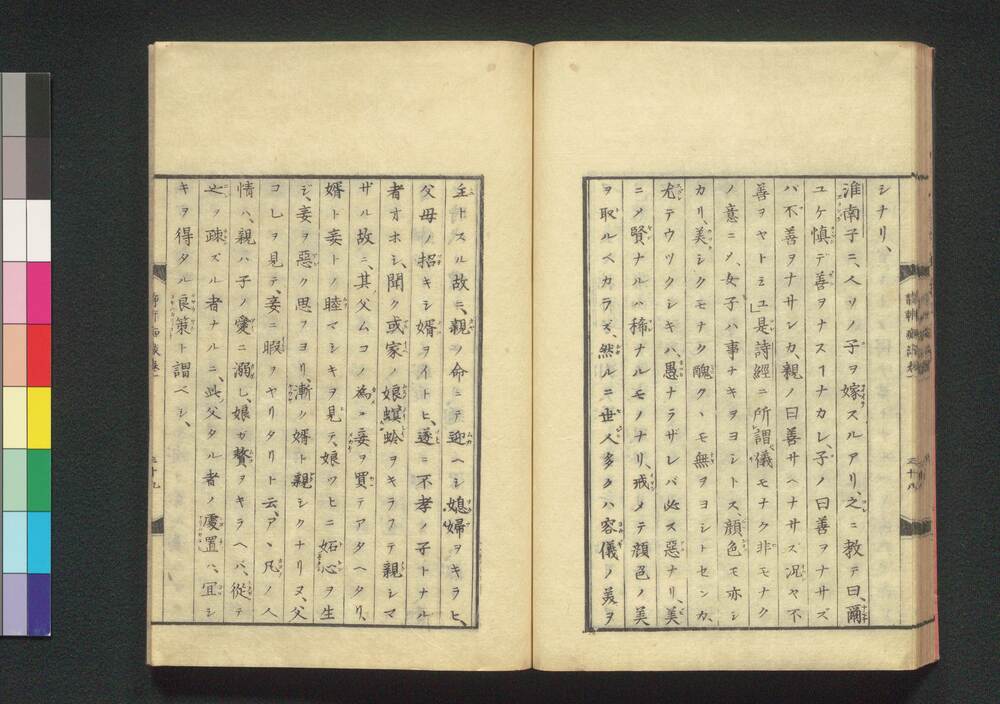 シナリ、
淮南子ニ、人ソノ子ヲ嫁スルアリ、之ニ教テ曰、爾
ユケ慎デ善ヲナスヿナカレ、子ノ曰善ヲナサズ
バ不善ヲナサンカ、親ノ曰善サヘナサズ況ヤ不
善ヲヤトミユ」是詩經ニ所謂儀モナク非モナク
ノ意ニメ、女子ハ事ナキヲヨシトス、顔色モ亦シ
カリ、美シクモナク醜クヽモ無ヲヨシトセンカ、
尤テウツクシキハ、愚ナラザレバ必ス惡ナリ、美
ニメ賢ナルハ稀ナルモノナリ、戒メテ顔色ノ美
ヲ取ルベカラズ、然ルニ世人多クハ容儀ノ美ヲ
主トスル故ニ、親ノ命ニテ迎ヘシ媳婦ヲキラヒ、
父母ノ招キシ婿ヲイトヒ、遂ニ不孝ノ子トナル
者オホシ、聞ク或家ノ娘螟蛉ヲキラフテ親シマ
ザル故ニ、其父ムコノ為ニ妾ヲ買テアタヘタリ、
婿ト妾トノ睦マシキヲ見テ、娘ツヒニ妬心ヲ生
ジ、妾ヲ惡ク思フヨリ、漸ク婿ト親シクナリヌ、父
コレヲ見テ、妾ニ暇ヲヤリタリト云、アヽ凡ノ人
情ハ、親ハ子ノ愛ニ溺レ、娘ガ贅ヲキラヘバ、從テ
之ヲ疎ズル者ナルニ、此父タル者ノ處置ハ、宜シ
キヲ得タル良策ト謂ベシ、
三十八
三十九